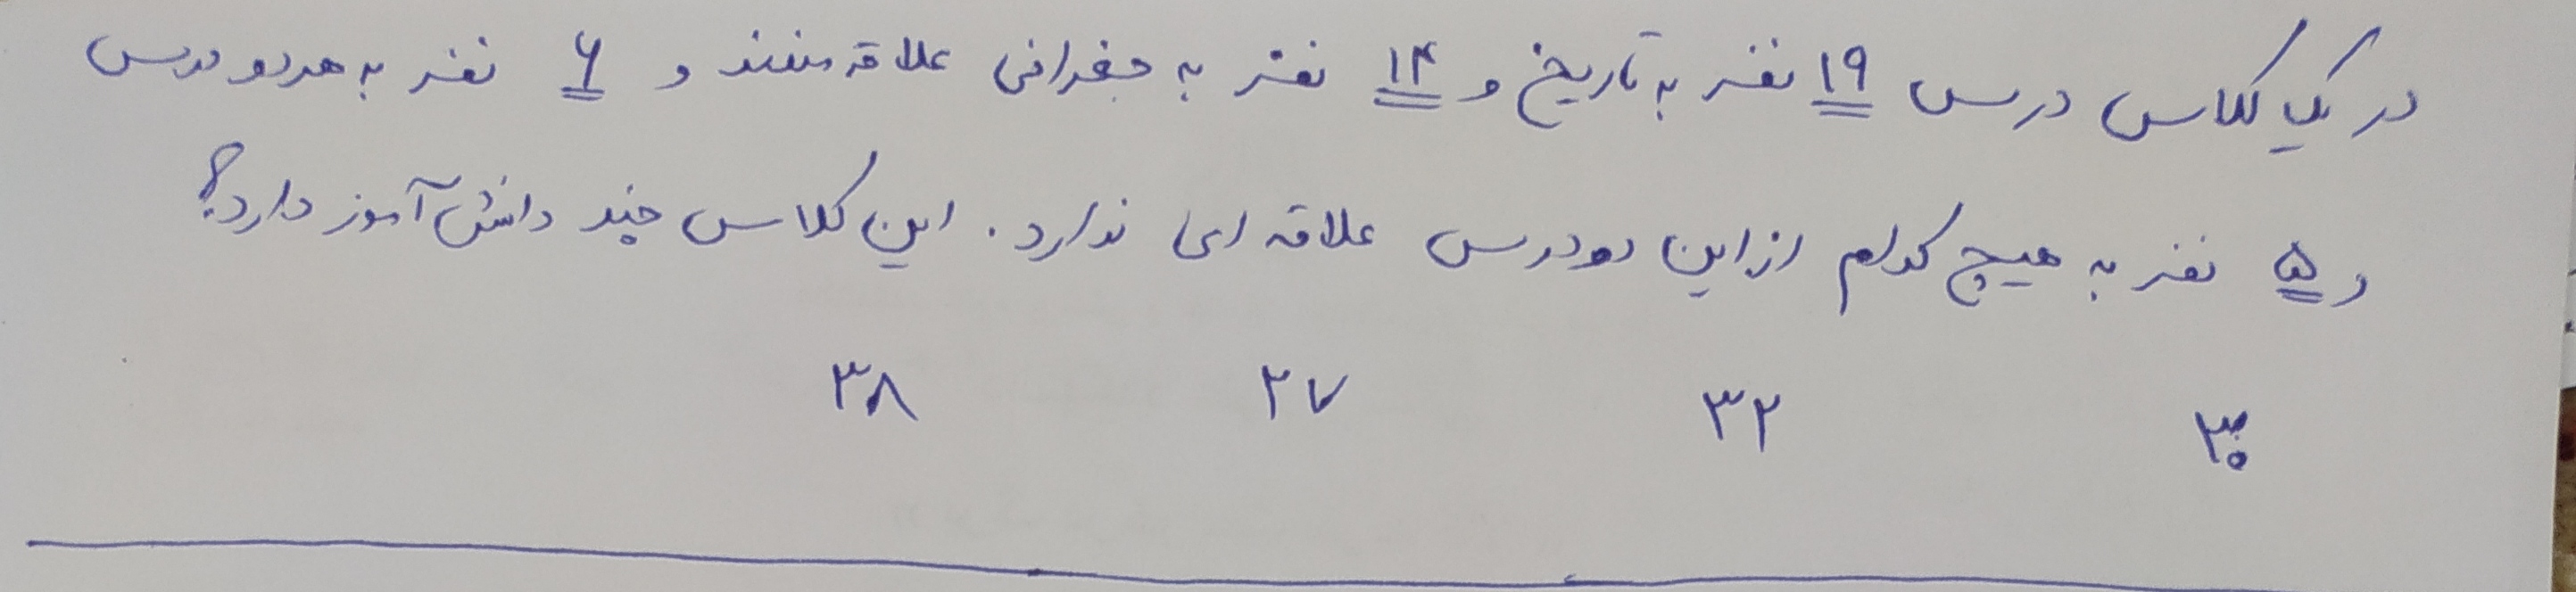 در یک کلاس درس ۱۹ نفر به تاریخ و ۱۴ نفر به جغرافی علاقه مندند و ۶ نفر به هر دو درس
و ۵ نفر به هیچ کدام از این دو درس علاقه ای ندارد. این کلاس چند دانش آموز دارد؟
۳۰ ۳۲ ۲۷ ۳۸